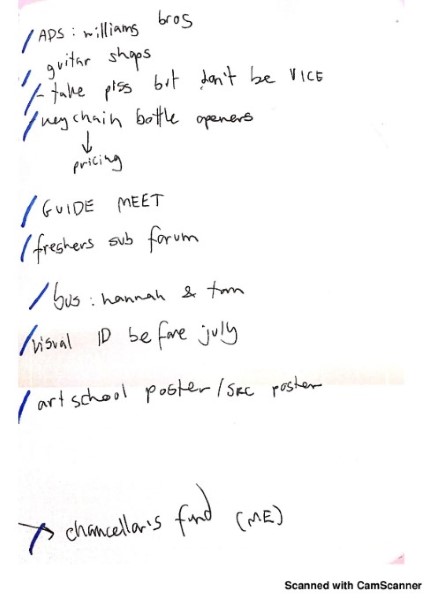 ADS : williams bros
guitar shops
- take piss but don't be VICE
keychain bottle openers
↓
pricing
GUIDE MEET
freshers sub forum
bus : hannah & tom
visual ID before july
art school poster / SRC poster
→ chancellor's fund (ME)
Scanned with CamScanner